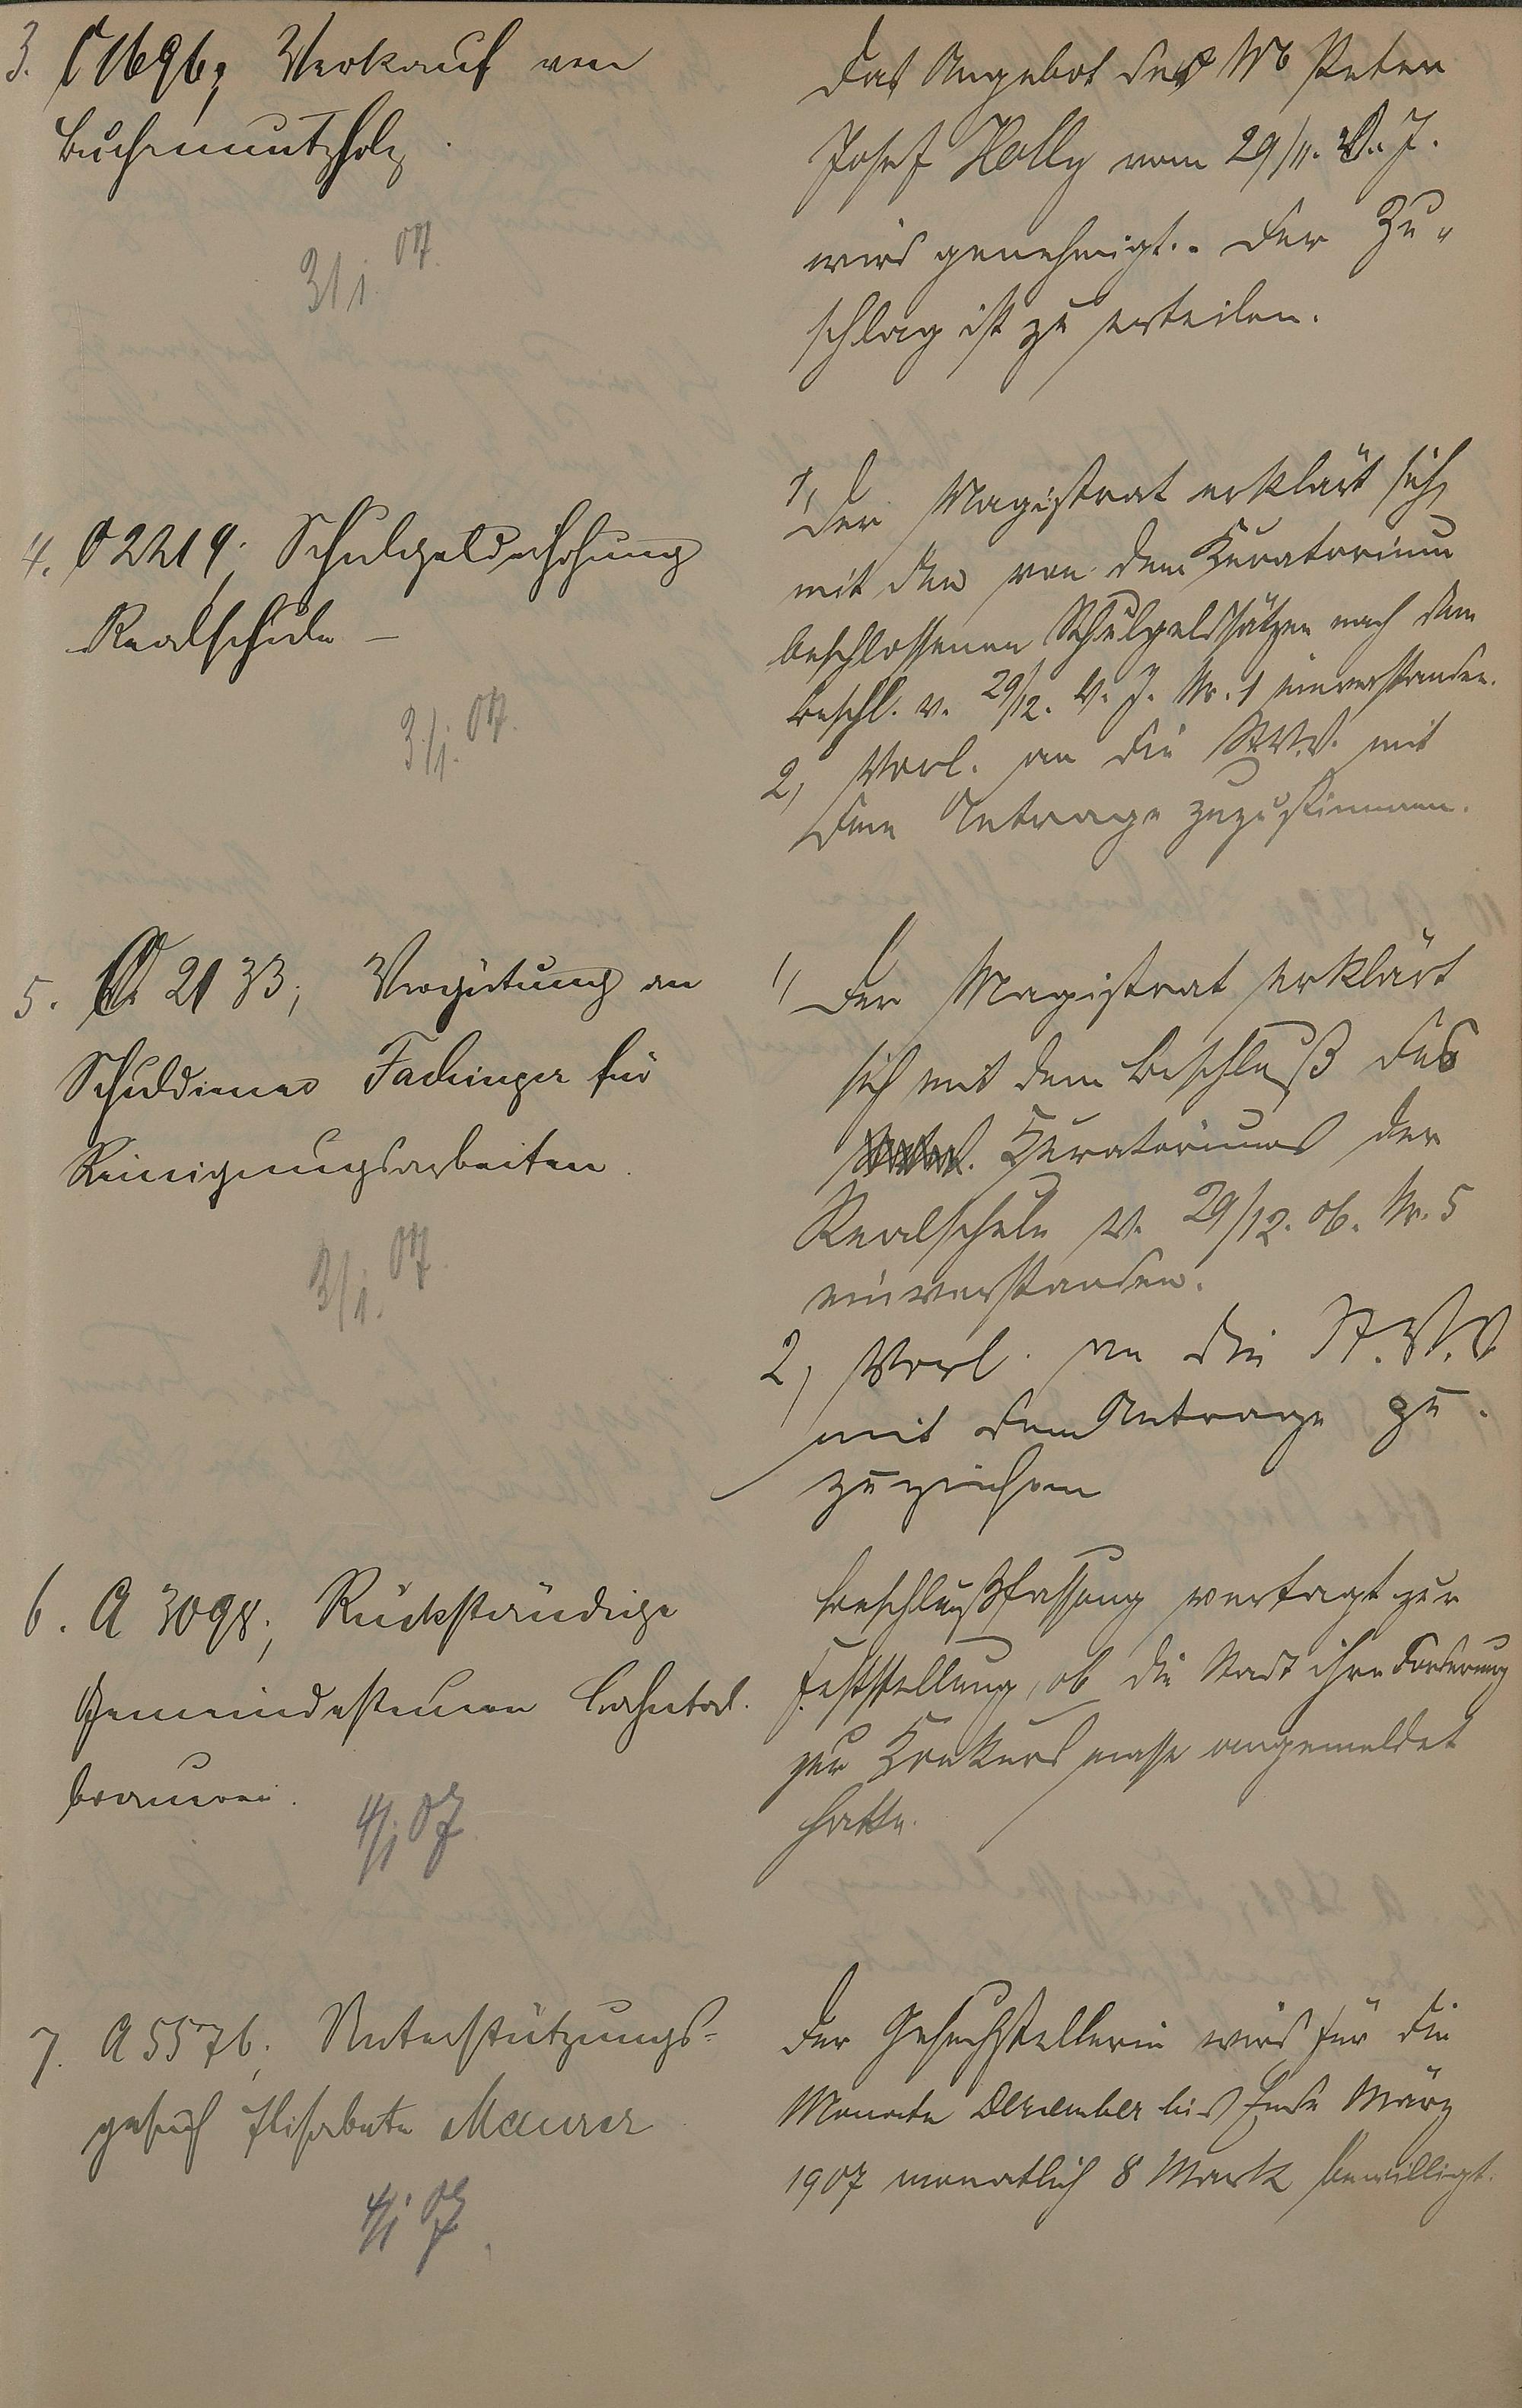 3. C 1696; Verkauf von
Buchennutzholz.
3/1. 07.
Das Angebot des Mb Peter
Josef Holly vom 29/11. v. J.
wird genehmigt. Der Zu-
schlag ist zu erteilen.
4. C 2219; Schulgelderhöhung
Realschule –
3/1. 07.
1, Der Magistrat erklärt sich
mit den von dem Kuratorium
beschlossenen Schulgeldsätzen nach dem
Beschl. v. 29/12. v. J. Nr. 1 einverstanden.
2, Vorl. an die St.V.V. mit
dem Antrage zuzustimmen.
5. C 2133; Vergütung an
Schuldiener Fachinger für
Reinigungsarbeiten.
3/1. 07.
1, Der Magistrat erklärt
sich mit dem Beschluß des
Kuratoriums der
Realschule v. 29/12. 06. Nr. 5
einverstanden.
2, Vorl. an die St.V.V.
mit dem Antrage zu-
6. A 3098; Rückständige
Gemeindesteuern Lahntal.
brauerei.
4/1 07
Beschlußfassung vertagt zur
Feststellung, ob die Stadt ihre Forderung
zur Konkursmasse angemeldet
hatte.
7. A 5576; Unterstützungs-
gesuch Elisabete Maurer
4/1 07.
Der Gesuchstellerin wird für die
Monate Dezember bis Ende März
1907 monatlich 8 Mark bewilligt.